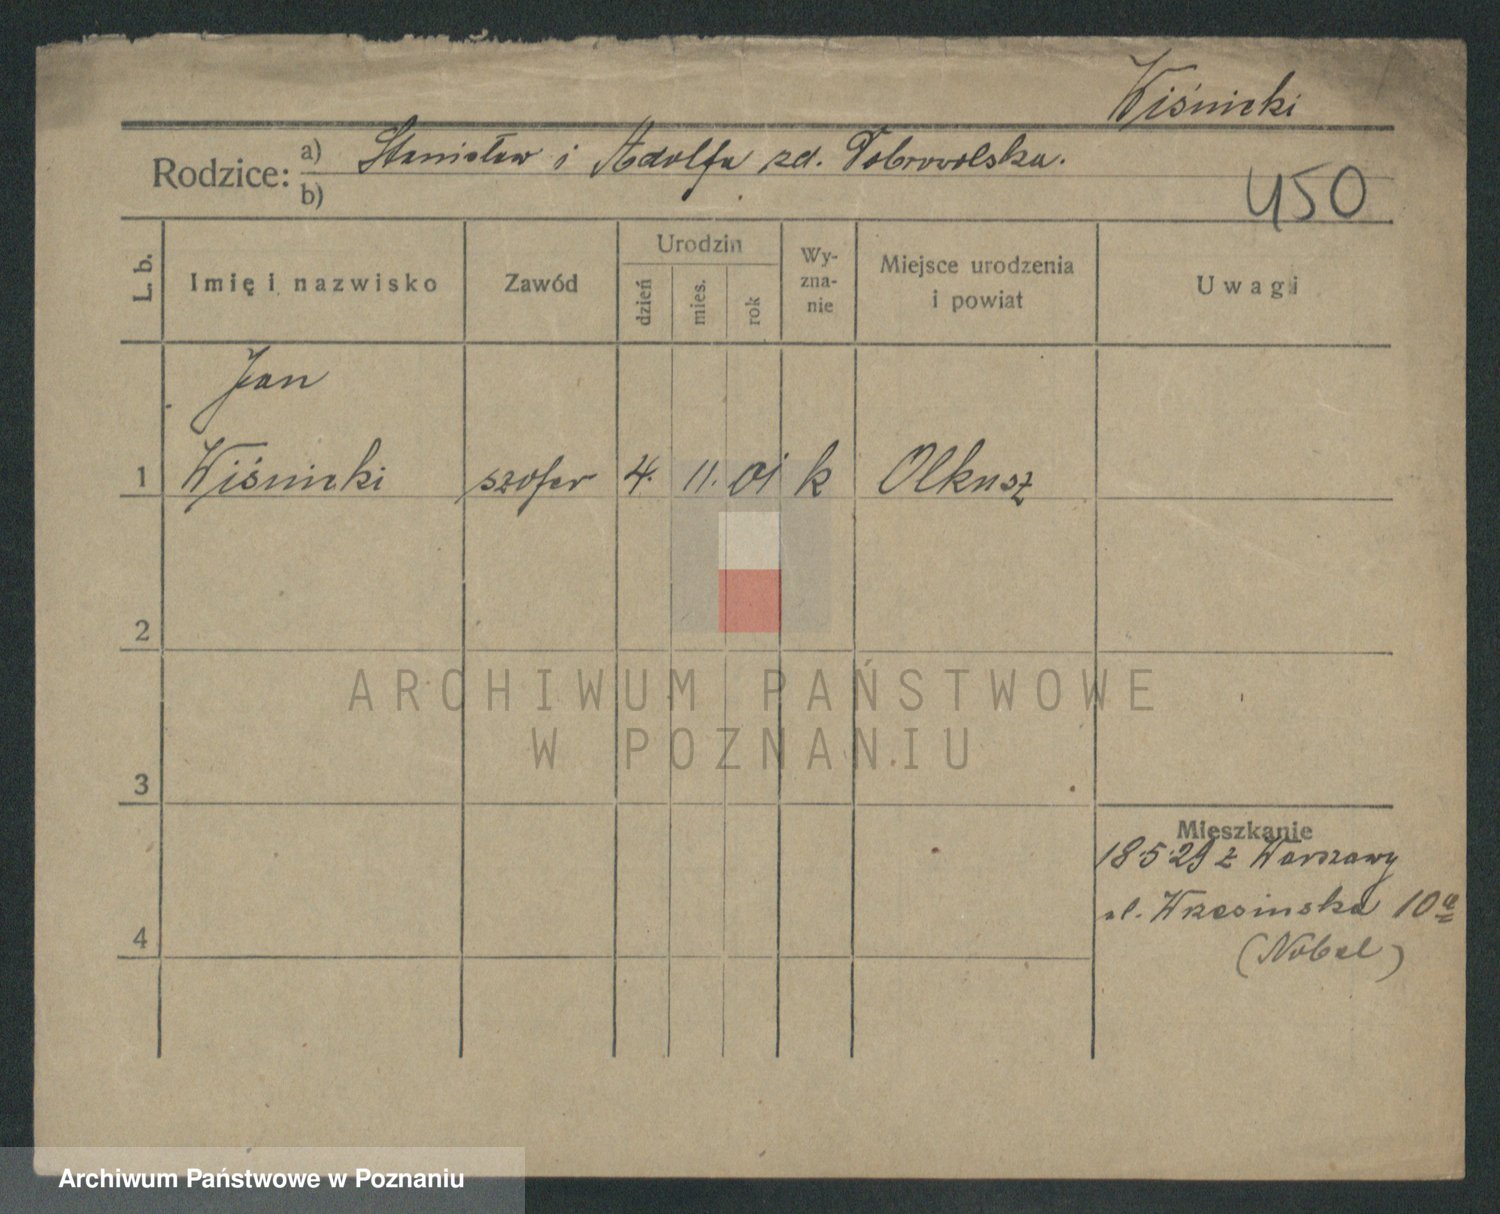 Wiśnicki
Rodzice: a) Stanisław i Adolfa zd. Dobrowolska.
b)
450
L. b.
Imię i nazwisko
Zawód
Urodzin
dzień
mies.
rok
Wy-
zna-
nie
Miejsce urodzenia
i powiat
Uwagi
Jan
1 Wiśnicki szofer 4. 11. 01 k Olkusz
2
3
4
Mieszkanie
18·5·29 z Warszawy
ul. Wrzesinska 10a
(Nobel)
ARCHIWUM PAŃSTWOWE
W POZNANIU
Archiwum Państwowe w Poznaniu